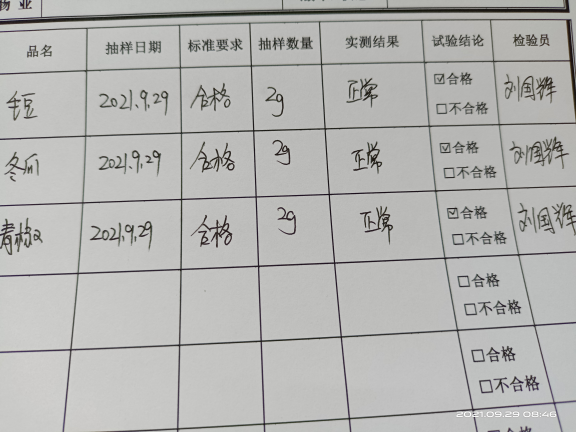 物业
品名 抽样日期 标准要求 抽样数量 实测结果 试验结论 检验员
毛豆 2021.9.29 合格 2g 正常 ☑合格 刘国辉
□不合格
冬瓜 2021.9.29 合格 2g 正常 ☑合格 刘国辉
□不合格
青 2021.9.29 合格 2g 正常 ☑合格 刘国辉
□不合格
□合格
□不合格
□合格
□不合格
2021.09.29 08:46